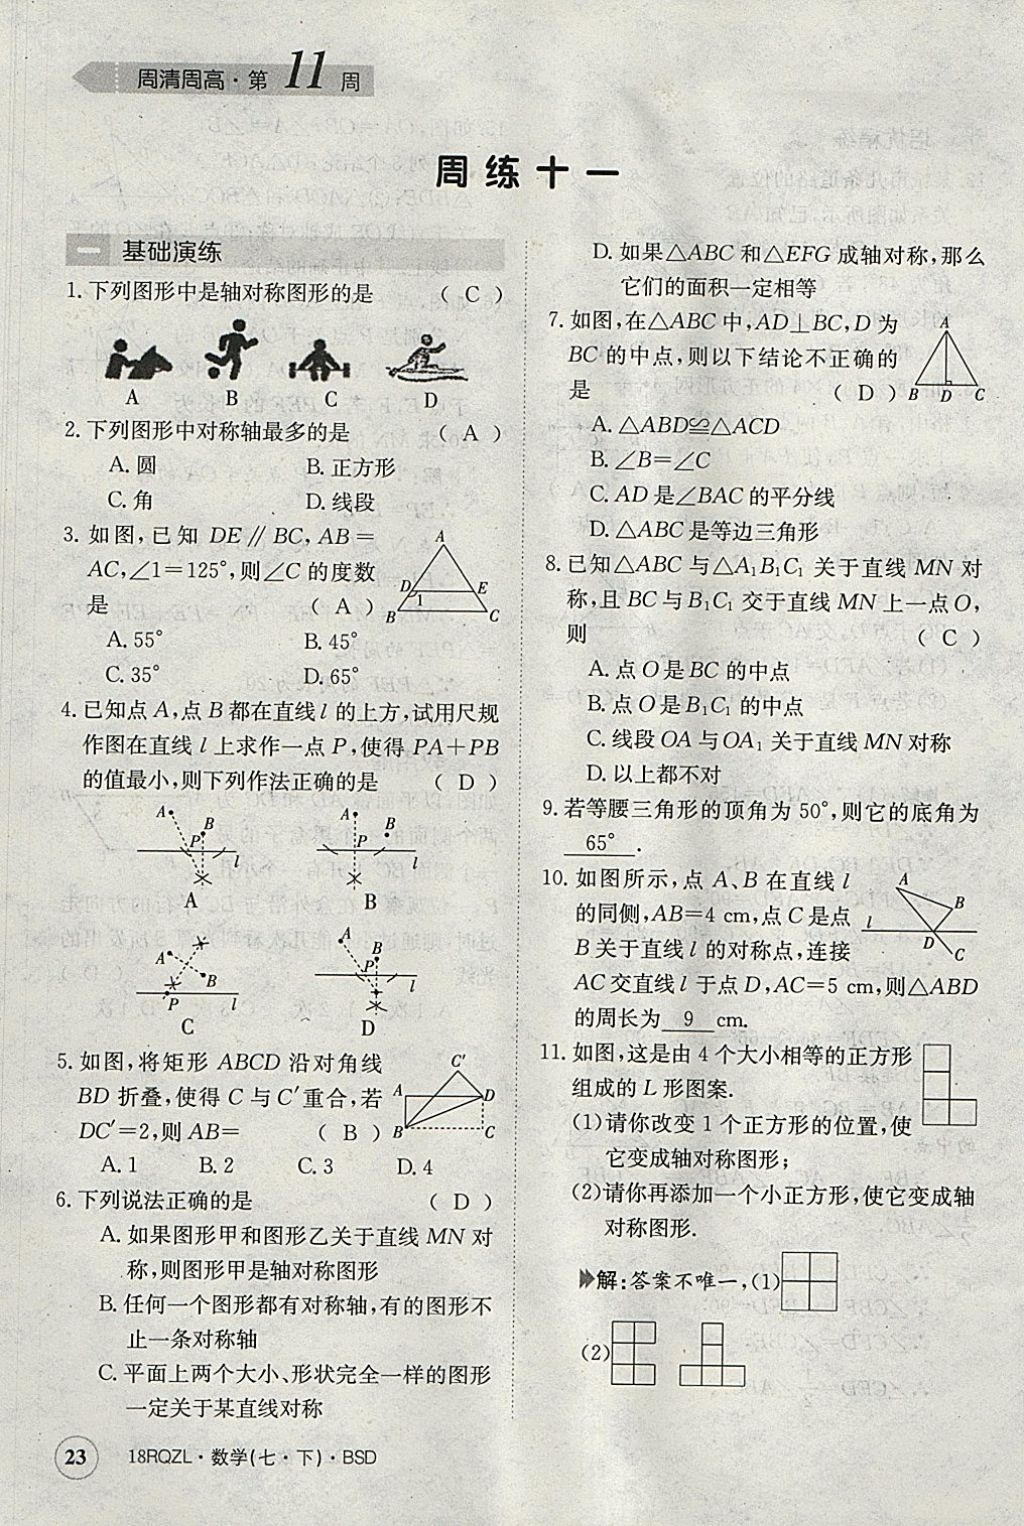 周清周高·第11周
周练十一
一 基础演练
1.下列图形中是轴对称图形的是 ( C )
A B C D
2.下列图形中对称轴最多的是 ( A )
A.圆 B.正方形
C.角 D.线段
3.如图,已知 DE∥BC,AB=
AC,∠1=125°,则∠C 的度数
是 ( A )
A D E 1 B C
A.55° B.45°
C.35° D.65°
4.已知点 A,点 B 都在直线 l 的上方,试用尺规
作图在直线 l 上求作一点 P,使得 PA+PB
的值最小,则下列作法正确的是 ( D )
A B P l A B l
A B
A B P l A B P l
C D
5.如图,将矩形 ABCD 沿对角线
BD 折叠,使得 C 与 C′重合,若
DC′=2,则 AB= ( B )
C′ A D B C
A.1 B.2 C.3 D.4
6.下列说法正确的是 ( D )
A.如果图形甲和图形乙关于直线 MN 对
称,则图形甲是轴对称图形
B.任何一个图形都有对称轴,有的图形不
止一条对称轴
C.平面上两个大小、形状完全一样的图形
一定关于某直线对称
D.如果△ABC 和△EFG 成轴对称,那么
它们的面积一定相等
7.如图,在△ABC 中,AD⊥BC,D 为
BC 的中点,则以下结论不正确的
是 ( D )
A B D C
A.△ABD≌△ACD
B.∠B=∠C
C.AD 是∠BAC 的平分线
D.△ABC 是等边三角形
8.已知△ABC 与△A₁B₁C₁ 关于直线 MN 对
称,且 BC 与 B₁C₁ 交于直线 MN 上一点 O,
则 ( C )
A.点 O 是 BC 的中点
B.点 O 是 B₁C₁ 的中点
C.线段 OA 与 OA₁ 关于直线 MN 对称
D.以上都不对
9.若等腰三角形的顶角为 50°,则它的底角为
65° .
10.如图所示,点 A、B 在直线 l
的同侧,AB=4 cm,点 C 是点
B 关于直线 l 的对称点,连接
AC 交直线 l 于点 D,AC=5 cm,则△ABD
的周长为 9 cm.
A B l D C
11.如图,这是由 4 个大小相等的正方形
组成的 L 形图案.
(1)请你改变 1 个正方形的位置,使
它变成轴对称图形;
(2)请你再添加一个小正方形,使它变成轴
对称图形.
解:答案不唯一,(1)
(2)
23 18RQZL·数学(七·下)·BSD